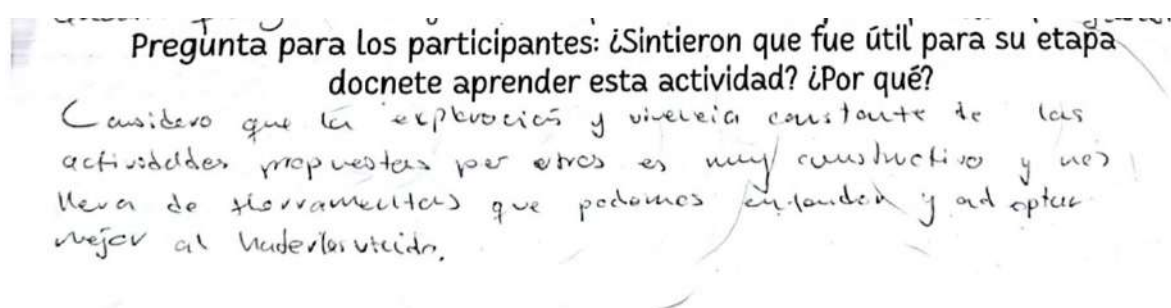 Pregunta para los participantes: ¿Sintieron que fue útil para su etapa
docnete aprender esta actividad? ¿Por qué?
Considero que la exploración y vivencia constante de las
actividades propuestas por otros es muy constructivo y nos
lleva de herramientas que podemos entender y adoptar
mejor al haberlas vivido.